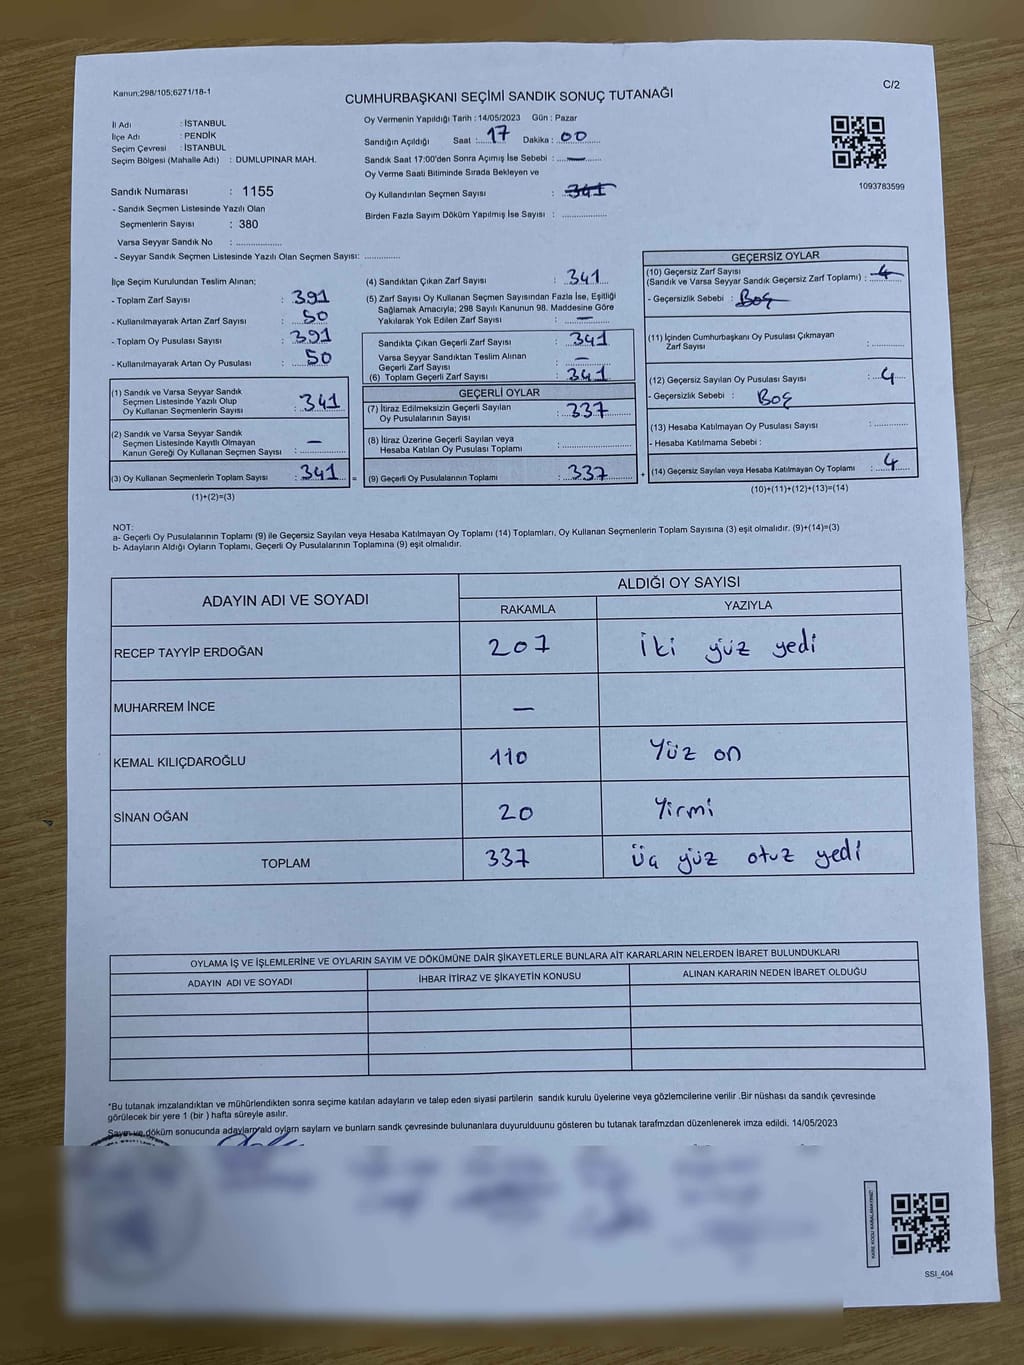 Kanun;298/105;6271/18-1
C/2
CUMHURBAŞKANI SEÇİMİ SANDIK SONUÇ TUTANAĞI
İl Adı : İSTANBUL
İlçe Adı : PENDİK
Seçim Çevresi : İSTANBUL
Seçim Bölgesi (Mahalle Adı) : DUMLUPINAR MAH.
Sandık Numarası : 1155
- Sandık Seçmen Listesinde Yazılı Olan
Seçmenlerin Sayısı : 380
Varsa Seyyar Sandık No : ................
- Seyyar Sandık Seçmen Listesinde Yazılı Olan Seçmen Sayısı: ............
Oy Vermenin Yapıldığı Tarih : 14/05/2023 Gün : Pazar
Sandığın Açıldığı Saat : 17 Dakika : 00
Sandık Saat 17:00'den Sonra Açımış İse Sebebi : —
Oy Verme Saati Bitiminde Sırada Bekleyen ve
Oy Kullandırılan Seçmen Sayısı : 341
Birden Fazla Sayım Döküm Yapılmış İse Sayısı : ................
1093783599
İlçe Seçim Kurulundan Teslim Alınan;
- Toplam Zarf Sayısı : 391
- Kullanılmayarak Artan Zarf Sayısı : 50
- Toplam Oy Pusulası Sayısı : 391
- Kullanılmayarak Artan Oy Pusulası : 50
(1) Sandık ve Varsa Seyyar Sandık
Seçmen Listesinde Yazılı Olup
Oy Kullanan Seçmenlerin Sayısı : 341
(2) Sandık ve Varsa Seyyar Sandık
Seçmen Listesinde Kayıtlı Olmayan
Kanun Gereği Oy Kullanan Seçmen Sayısı : —
(3) Oy Kullanan Seçmenlerin Toplam Sayısı : 341 =
(1)+(2)=(3)
(4) Sandıktan Çıkan Zarf Sayısı : 341
(5) Zarf Sayısı Oy Kullanan Seçmen Sayısından Fazla İse, Eşitliği
Sağlamak Amacıyla; 298 Sayılı Kanunun 98. Maddesine Göre
Yakılarak Yok Edilen Zarf Sayısı : —
Sandıkta Çıkan Geçerli Zarf Sayısı : 341
Varsa Seyyar Sandıktan Teslim Alınan
Geçerli Zarf Sayısı : —
(6) Toplam Geçerli Zarf Sayısı : 341
GEÇERLİ OYLAR
(7) İtiraz Edilmeksizin Geçerli Sayılan
Oy Pusulalarının Sayısı : 337
(8) İtiraz Üzerine Geçerli Sayılan veya
Hesaba Katılan Oy Pusulası Toplamı : ................
(9) Geçerli Oy Pusulalarının Toplamı : 337 +
GEÇERSİZ OYLAR
(10) Geçersiz Zarf Sayısı
(Sandık ve Varsa Seyyar Sandık Geçersiz Zarf Toplamı) : 4
- Geçersizlik Sebebi : Boş
(11) İçinden Cumhurbaşkanı Oy Pusulası Çıkmayan
Zarf Sayısı : ............
(12) Geçersiz Sayılan Oy Pusulası Sayısı : 4
- Geçersizlik Sebebi : Boş
(13) Hesaba Katılmayan Oy Pusulası Sayısı : ............
- Hesaba Katılmama Sebebi :
(14) Geçersiz Sayılan veya Hesaba Katılmayan Oy Toplamı : 4
(10)+(11)+(12)+(13)=(14)
NOT:
a- Geçerli Oy Pusulalarının Toplamı (9) ile Geçersiz Sayılan veya Hesaba Katılmayan Oy Toplamı (14) Toplamları, Oy Kullanan Seçmenlerin Toplam Sayısına (3) eşit olmalıdır. (9)+(14)=(3)
b- Adayların Aldığı Oyların Toplamı, Geçerli Oy Pusulalarının Toplamına (9) eşit olmalıdır.
ADAYIN ADI VE SOYADI ALDIĞI OY SAYISI
RAKAMLA YAZIYLA
RECEP TAYYİP ERDOĞAN 207 İki yüz yedi
MUHARREM İNCE —
KEMAL KILIÇDAROĞLU 110 Yüz on
SİNAN OĞAN 20 Yirmi
TOPLAM 337 üç yüz otuz yedi
OYLAMA İŞ VE İŞLEMLERİNE VE OYLARIN SAYIM VE DÖKÜMÜNE DAİR ŞİKAYETLERLE BUNLARA AİT KARARLARIN NELERDEN İBARET BULUNDUKLARI
ADAYIN ADI VE SOYADI İHBAR İTİRAZ VE ŞİKAYETİN KONUSU ALINAN KARARIN NEDEN İBARET OLDUĞU
*Bu tutanak imzalandıktan ve mühürlendikten sonra seçime katılan adayların ve talep eden siyasi partilerin sandık kurulu üyelerine veya gözlemcilerine verilir .Bir nüshası da sandık çevresinde
görülecek bir yere 1 (bir ) hafta süreyle asılır.
Sayım ve döküm sonucunda adayların ald oyların sayların ve bunların sandk çevresinde bulunanlara duyurulduunu gösteren bu tutanak tarafmzdan düzenlenerek imza edildi. 14/05/2023
KARE KODU KARALAMAYINIZ!
SSI_404